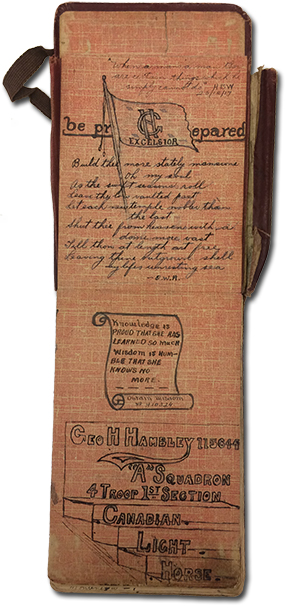 "When a man is a man there
are certain things which he
simply cannot do" H.C.W
be prepared
EXCELSIOR
Build thee more stately mansions
Oh my soul
As the swift seasons roll
Leave thy low vaulted past
Let each new temple nobler than
the last
Shut thee from heaven with a
dome more vast
Till thou at length art free
Leaving thine outgrown shell
by life's unresting sea
Knowledge is
proud that she has
learned so much
Wisdom is hum-
ble that she
knows no
more.
Geo H Hambley 115664
"A" Squadron
4 Troop 1st Section
Canadian
Light
Horse.